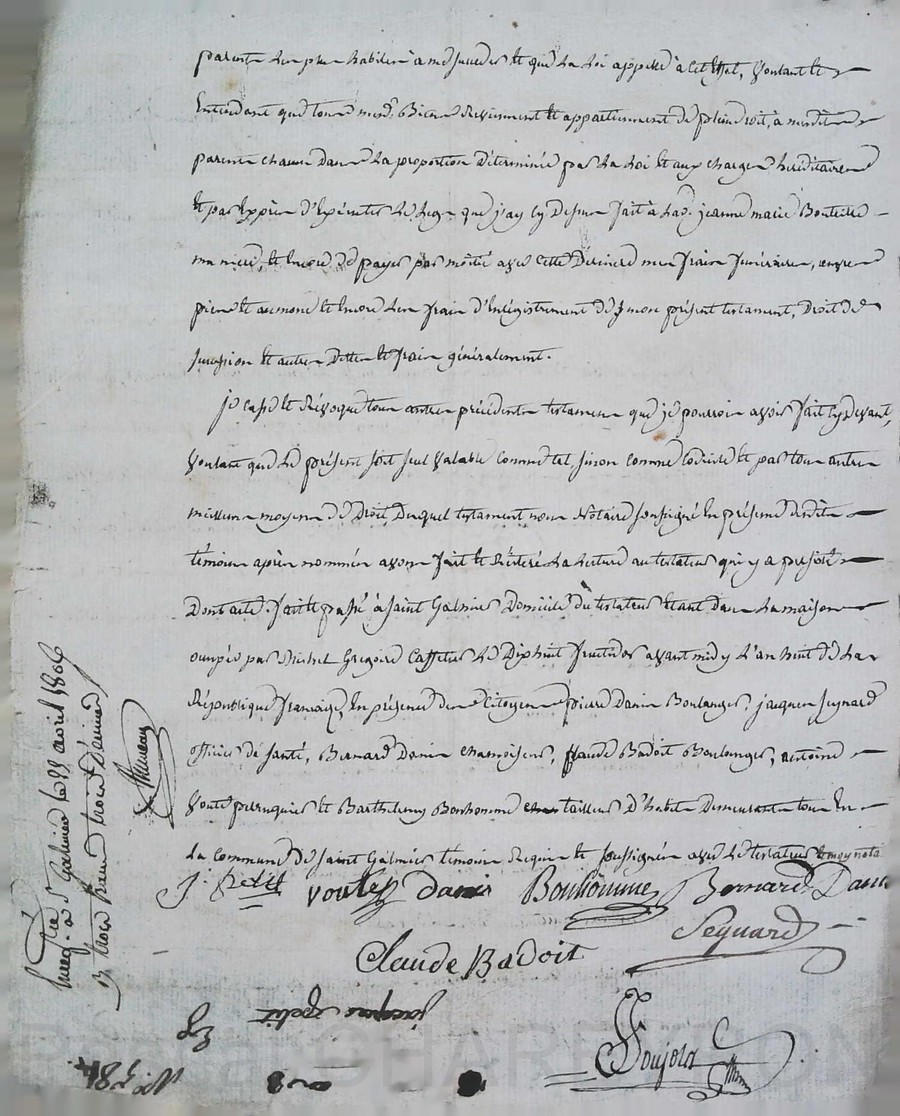 parents les plus habiles à me succéder et que la loi appelle à cet effet, voulant et
Entendant que tous mesd. Biens reviennent et appartiennent de plein droit, à mesdits
parents chacun dans la proportion déterminée par la loi et aux charges héréditaires
et par Exprès d'Exécuter le legs que j'ay cy dessus fait à lad. jeanne marie Bouteille
ma niece, et encore de payer par moitié avec cette Dernière mes frais funéraires, œuvres
pies et aumone et encore les frais d'Enregistrement de mon présent testament, Droit de
succession et autres Dettes et frais généralement.
je casse et Révoque tous autres précédents testaments que je pourrois avoir fait cy devant,
voulant que le présent soit seul valable comme tel, sinon comme codicile et par tous autres
meilleurs moyens de Droit, Duquel testament nous Notaire soussigné En présence desdits
témoins après nommés avons fait et Réiteré la lecture au testateur qui y a persisté
Dont acte. fait et passé à Saint Galmier Domicile du testateur Etant dans la maison
occupée par Michel Gregoire Caffetier le Dixhuit fructidor avant midy l'an huit de la
République française, En présence des Citoyens pierre Danis Boulanger, jacques Seynard
officier de santé, Bernard Danis chamoiseur, Claude Badoit Boulanger, antoine
Voute perruquier et Barthelemy Bonhomme tailleur D'habits Demeurants tous En
la Commune de Saint Galmier témoins Requis et soussignés avec le testateur et moy nota
J. Petit voutes Danis Bonhomme Bernard Danis
Seynard
Claude Badoit
jacques petit
Enreg.tré à St Galmier le avril 1806
trois francs